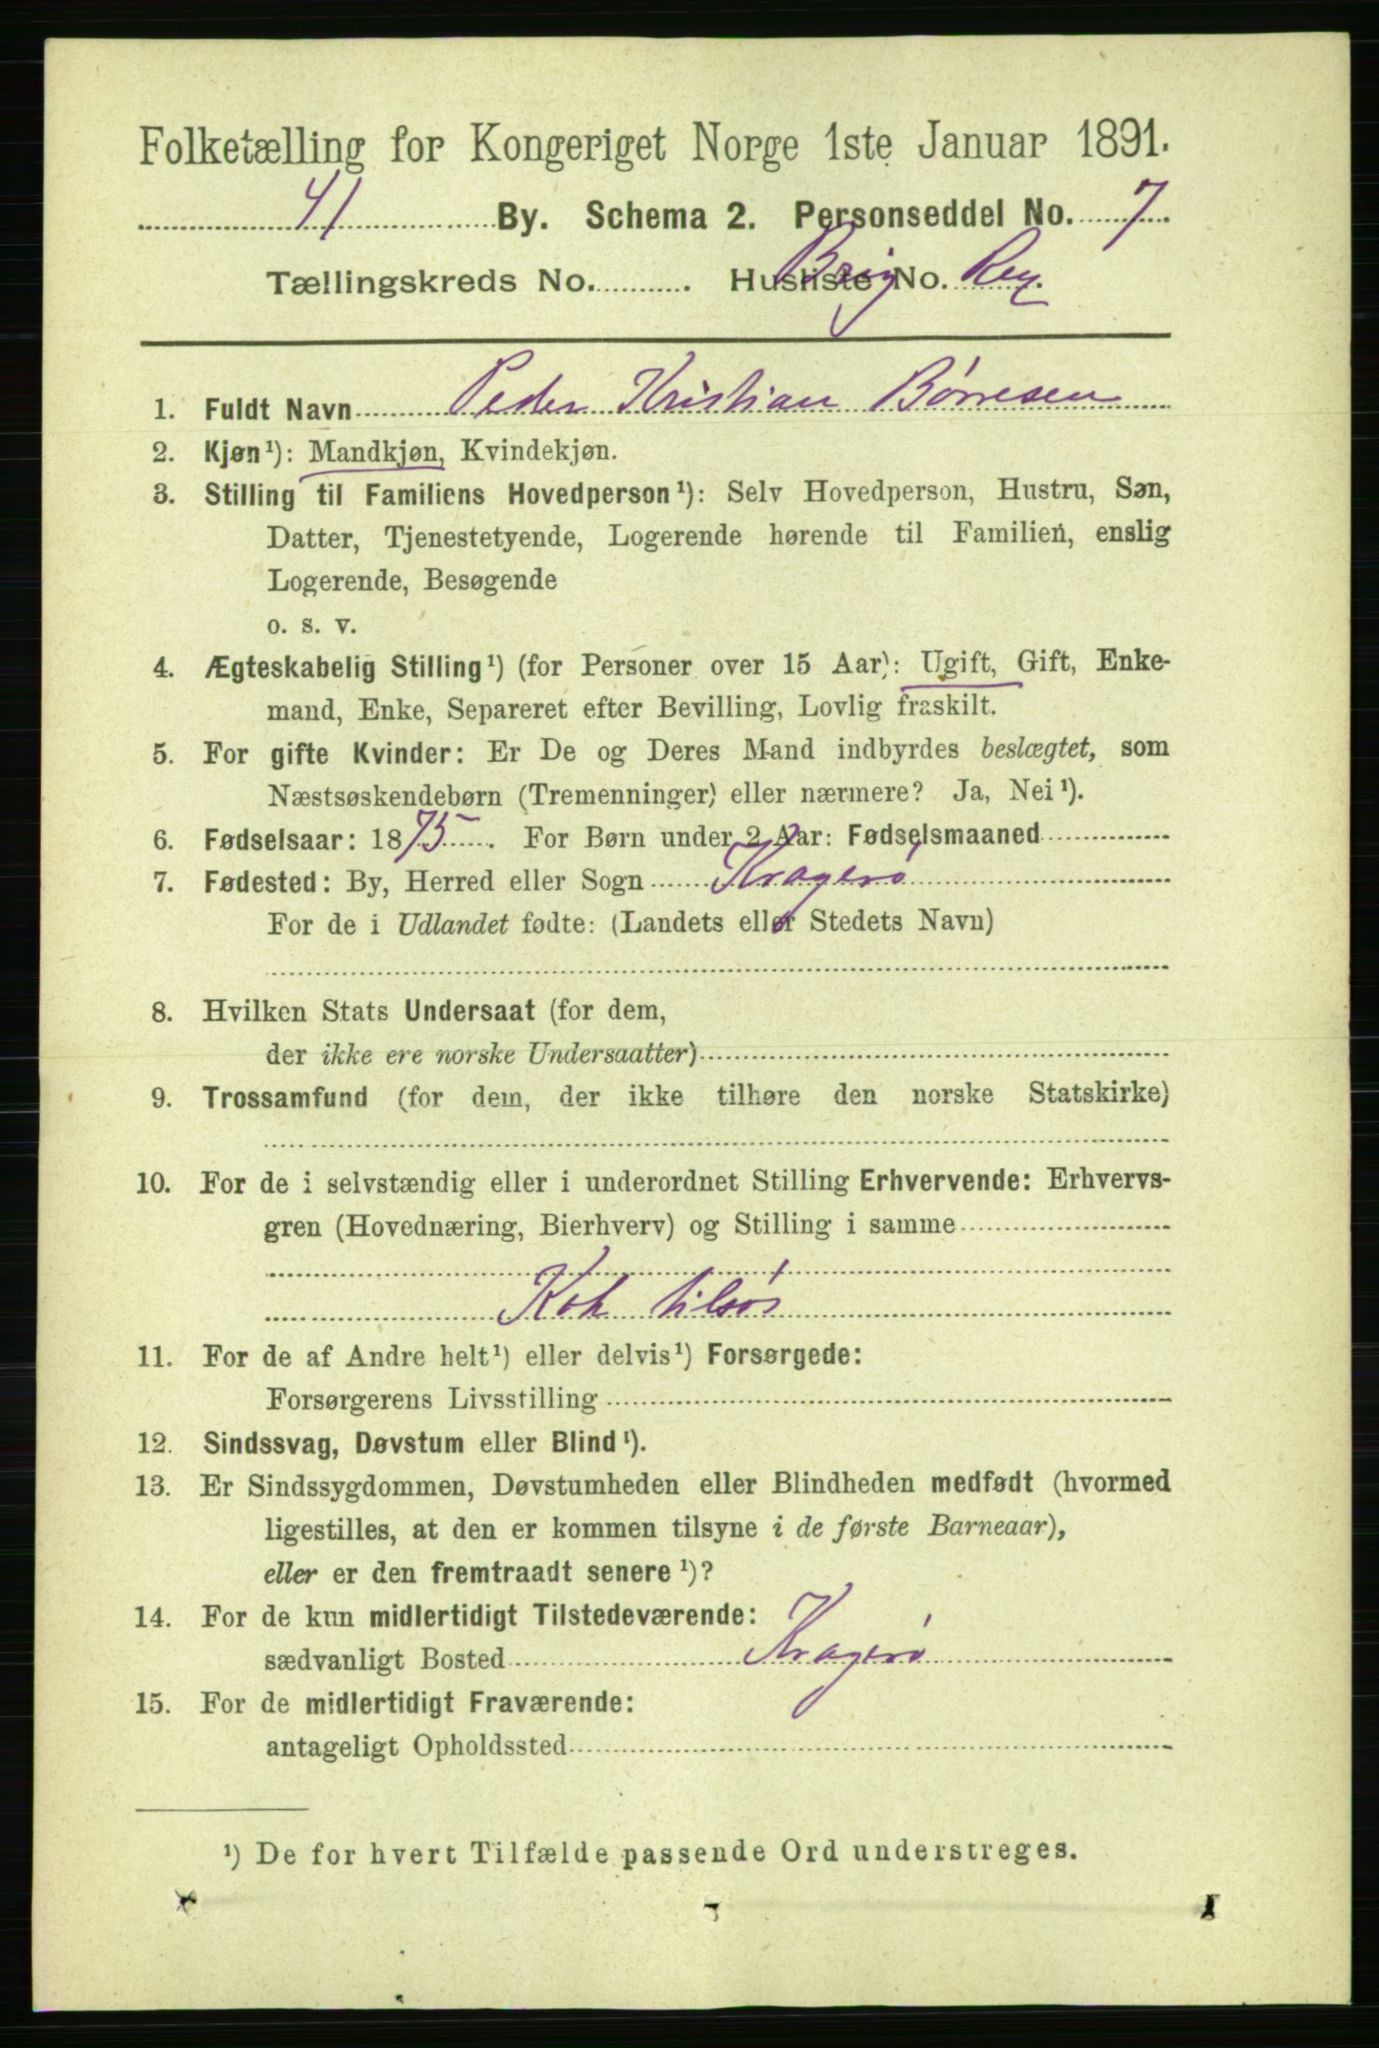 Folketælling for Kongeriget Norge 1ste Januar 1891.
41 By. Schema 2. Personseddel No. 7
Tællingskreds No. Husliste No.
Brig Rex
1. Fuldt Navn Peder Kristian Børresen
2. Kjøn¹): Mandkjøn, Kvindekjøn.
3. Stilling til Familiens Hovedperson¹): Selv Hovedperson, Hustru, Søn,
Datter, Tjenestetyende, Logerende hørende til Familien, enslig
Logerende, Besøgende
o. s. v.
4. Ægteskabelig Stilling¹) (for Personer over 15 Aar): Ugift, Gift, Enke-
mand, Enke, Separeret efter Bevilling, Lovlig fraskilt.
5. For gifte Kvinder: Er De og Deres Mand indbyrdes beslægtet, som
Næstsøskendebørn (Tremenninger) eller nærmere? Ja, Nei¹).
6. Fødselsaar: 1875. For Børn under 2 Aar: Fødselsmaaned
7. Fødested: By, Herred eller Sogn Kragerø
For de i Udlandet fødte: (Landets eller Stedets Navn)
8. Hvilken Stats Undersaat (for dem,
der ikke ere norske Undersaatter)
9. Trossamfund (for dem, der ikke tilhøre den norske Statskirke)
10. For de i selvstændig eller i underordnet Stilling Erhvervende: Erhvervs-
gren (Hovednæring, Bierhverv) og Stilling i samme
Kok tilsøs
11. For de af Andre helt¹) eller delvis¹) Forsørgede:
Forsørgerens Livsstilling
12. Sindssvag, Døvstum eller Blind¹).
13. Er Sindssygdommen, Døvstumheden eller Blindheden medfødt (hvormed
ligestilles, at den er kommen tilsyne i de første Barneaar),
eller er den fremtraadt senere¹)?
14. For de kun midlertidigt Tilstedeværende:
sædvanligt Bosted Kragerø
15. For de midlertidigt Fraværende:
antageligt Opholdssted
¹) De for hvert Tilfælde passende Ord understreges.